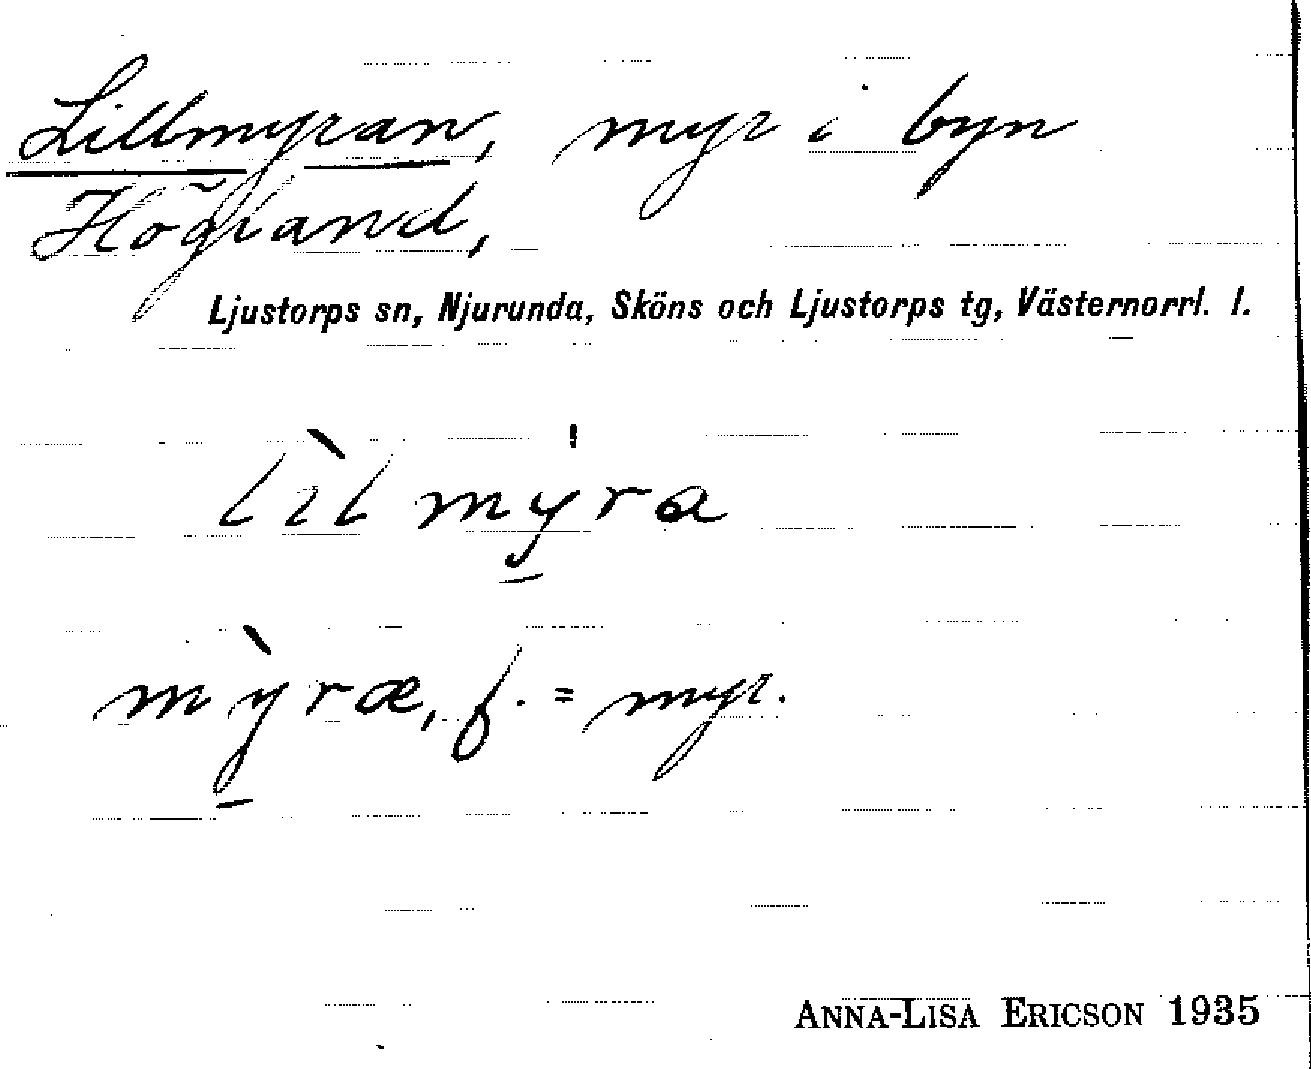 Lillmyran, myr i byn
Högland,
Ljustorps sn, Njurunda, Sköns och Ljustorps tg, Västernorrl. l.
lìlmy̲̍ra
mỳ̲ræ, f. = myr.
ANNA-LISA ERICSON 1935